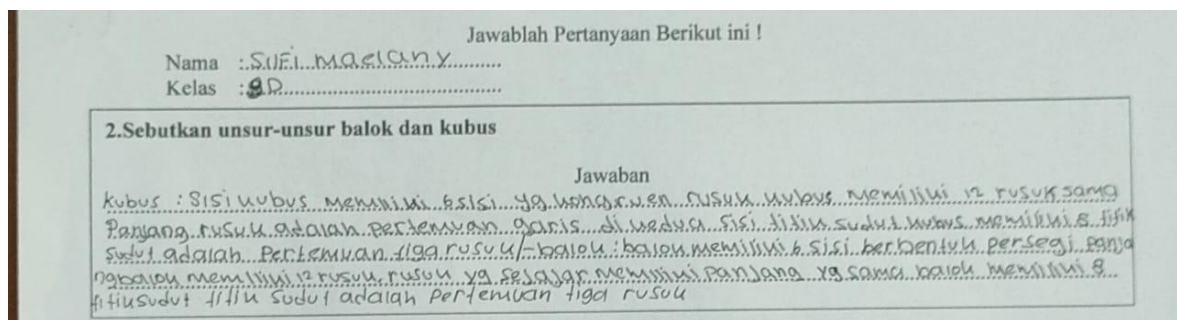 Jawablah Pertanyaan Berikut ini !
Nama : Sufi Maelany
Kelas : 8D
2.Sebutkan unsur-unsur balok dan kubus
Jawaban
kubus : Sisi kubus memiliki 6 sisi yg kongruen rusuk kubus memiliki 12 rusuk sama
Panjang rusuk adalah pertemuan garis di kedua sisi titik sudut kubus memiliki 8 titik
Sudut adalah Pertemuan tiga rusuk /-balok : balok memiliki 6 sisi berbentuk persegi panja
ng balok memiliki 12 rusuk, rusuk yg sejajar memiliki panjang yg sama balok memiliki 8
titik sudut titik sudut adalah pertemuan tiga rusuk